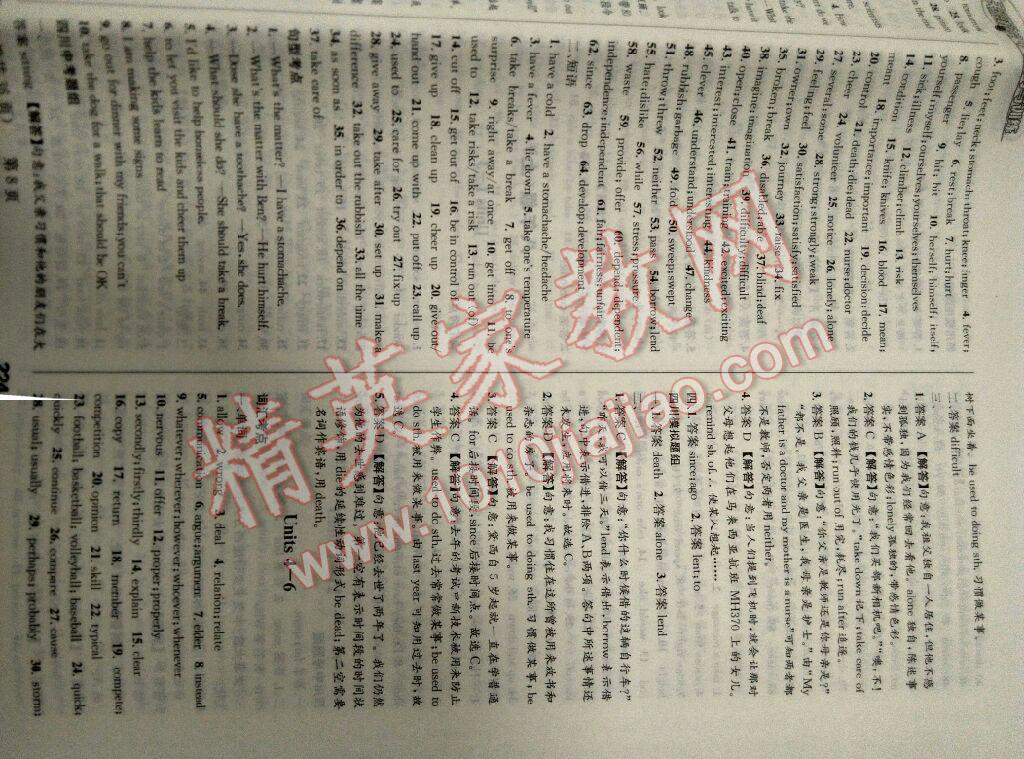 3. foot; feet; neck; stomach; throat; knee; finger 4. fever;
cough 5. lie; lay 6. rest; break 7. hurt; hurt
8. passenger 9. hit; hit 10. herself; himself; itself;
yourself; myself; ourselves; yourselves; themselves
11. sick; illness 12. climber; climb 13. risk
14. condition 15. knife; knives 16. blood 17. mean;
meant 18. importance; important 19. decision; decide
20. control 21. death; die; dead 22. nurse; doctor
23. clear 24. volunteer 25. notice 26. lonely; alone
27. several; some 28. strong; strongly; weak
29. feeling; feel 30. satisfaction; satisfy; satisfied
31. owner; own 32. journey 33. raise 34. fix
35. broken; break 36. disabled; able 37. blind; deaf
38. imagine; imagination 39. difficulty; difficult
40. open; close 41. train; training 42. excited; exciting
43. interest; interested; interesting 44. kindness
45. clever 46. understand; understood 47. change
48. rubbish; garbage 49. fold 50. sweep; swept
51. throw; threw 52. neither 53. pass 54. borrow; lend
55. hate; dislike 56. while 57. stress; pressure
58. waste 59. provide; offer 60. depend; dependent;
independence; independent 61. fair; fairness; unfair
62. since 63. drop 64. develop; development
二、短语
1. have a cold 2. have a stomachache/headache
3. have a fever 4. lie down 5. take one's temperature
6. take breaks/take a break 7. get off 8. to one's
surprise 9. right away; at once 10. get into 11. be
used to 12. take risks/take a risk 13. run out (of)
14. cut off 15. get out of 16. be in control of
17. give up 18. clean up 19. cheer up 20. give out/
hand out 21. come up with 22. put off 23. call up
24. used to 25. care for 26. try out 27. fix up
28. give away 29. take after 30. set up 31. make a
difference 32. take out the rubbish 33. all the time
34. as soon as 35. in order to 36. depend on
37. take care of
句型考点
1. —What's the matter? —I have a stomachache.
2. —What's the matter with Ben? —He hurt himself.
3. —Does she have a toothache? —Yes, she does.
4. —What should she do? —She should take a break.
5. I'd like to help homeless people.
6. to let you visit the kids and cheer them up
7. help the kids learn to read
8. I am making some signs
9. get out for dinner with my friends; you can't
10. take the dog for a walk; that should be OK
四川中考题组
【解答】句意：我父亲习惯和他的朋友们在大
树下面坐着。be used to doing sth. 习惯做某事。
二、答案 difficult
三、
1. 答案 A 【解答】句意：我祖父独自一人居住，但他不感
到孤独，因为我们经常回去看他。alone 独自，陈述事
实，不带感情色彩；lonely 孤独的，带感情色彩。
2. 答案 C 【解答】句意：“我们买部新相机吧。”“噢，不！
我们的钱几乎被用光了。”take down 记下；take care of
照顾，照料；run out of 用完，耗尽；run after 追逐。
3. 答案 B 【解答】句意：“你父亲是教师还是你母亲是？”
“都不是。我父亲是医生，我母亲是护士。”由“My
father is a doctor and my mother is a nurse”可知两者都
不是教师，否定两者用 neither。
4. 答案 D 【解答】句意：当人们提到飞机时，就会让那对
父母想起他们在马来西亚航班 MH370 上的女儿。
remind sb. of... 使某人想起……
四、1. 答案 since; ago 2. 答案 lent; to
四川模拟题组
一、1. 答案 death 2. 答案 alone 3. 答案 lend
二、
1. 答案 C 【解答】句意：“你什么时候借的这辆自行车？”
2. 答案 B 【解答】句意：我习惯住在这所曾被用来放书和
杂志的房子了。be used to doing sth. 习惯做某事；be
used to do sth. 被用来做某事。
4. 答案 C 【解答】句意：去年的考试中新技术被用来防止
学生作弊。used to do sth. 过去常常做某事；be used to
do sth. 被用来做某事。由 last year 可知用过去时，故
选 C。
5. 答案 D 【解答】句意：他已经去世了两年了。我们仍然
为他的去世感到难过。第一空有表示时间段的时间状
语修饰，用 die 的延续性动词形式 be dead；第二空需要
名词作宾语，用 death。
Units 4—6
词汇考点
一、单词
1. allow 2. wrong 3. deal 4. relation; relate
5. communication 6. argue; argument 7. elder 8. instead
9. whatever; wherever; however; whoever; whenever
10. nervous 11. offer 12. proper; properly
13. secondly; firstly; thirdly 14. explain 15. clear
16. copy 17. return 18. member 19. compete;
competition 20. opinion 21. skill 22. typical
23. football; basketball; volleyball; baseball 24. quick;
quickly 25. continue 26. compare 27. cause
28. usual; usually 29. perhaps; probably 30. storm;
224
精英家教网
www.1010jiajiao.com